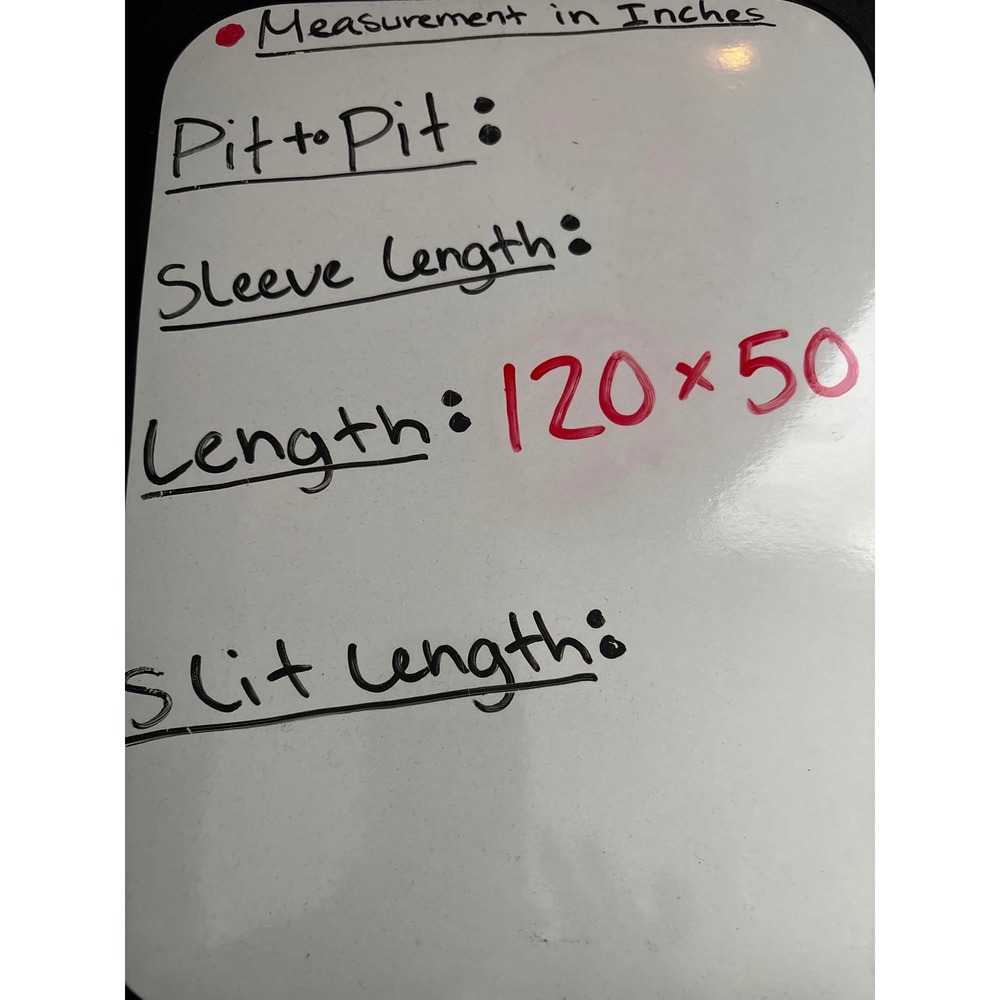 Measurement in Inches
Pit to Pit:
Sleeve Length:
Length: 120 x 50
Slit Length: